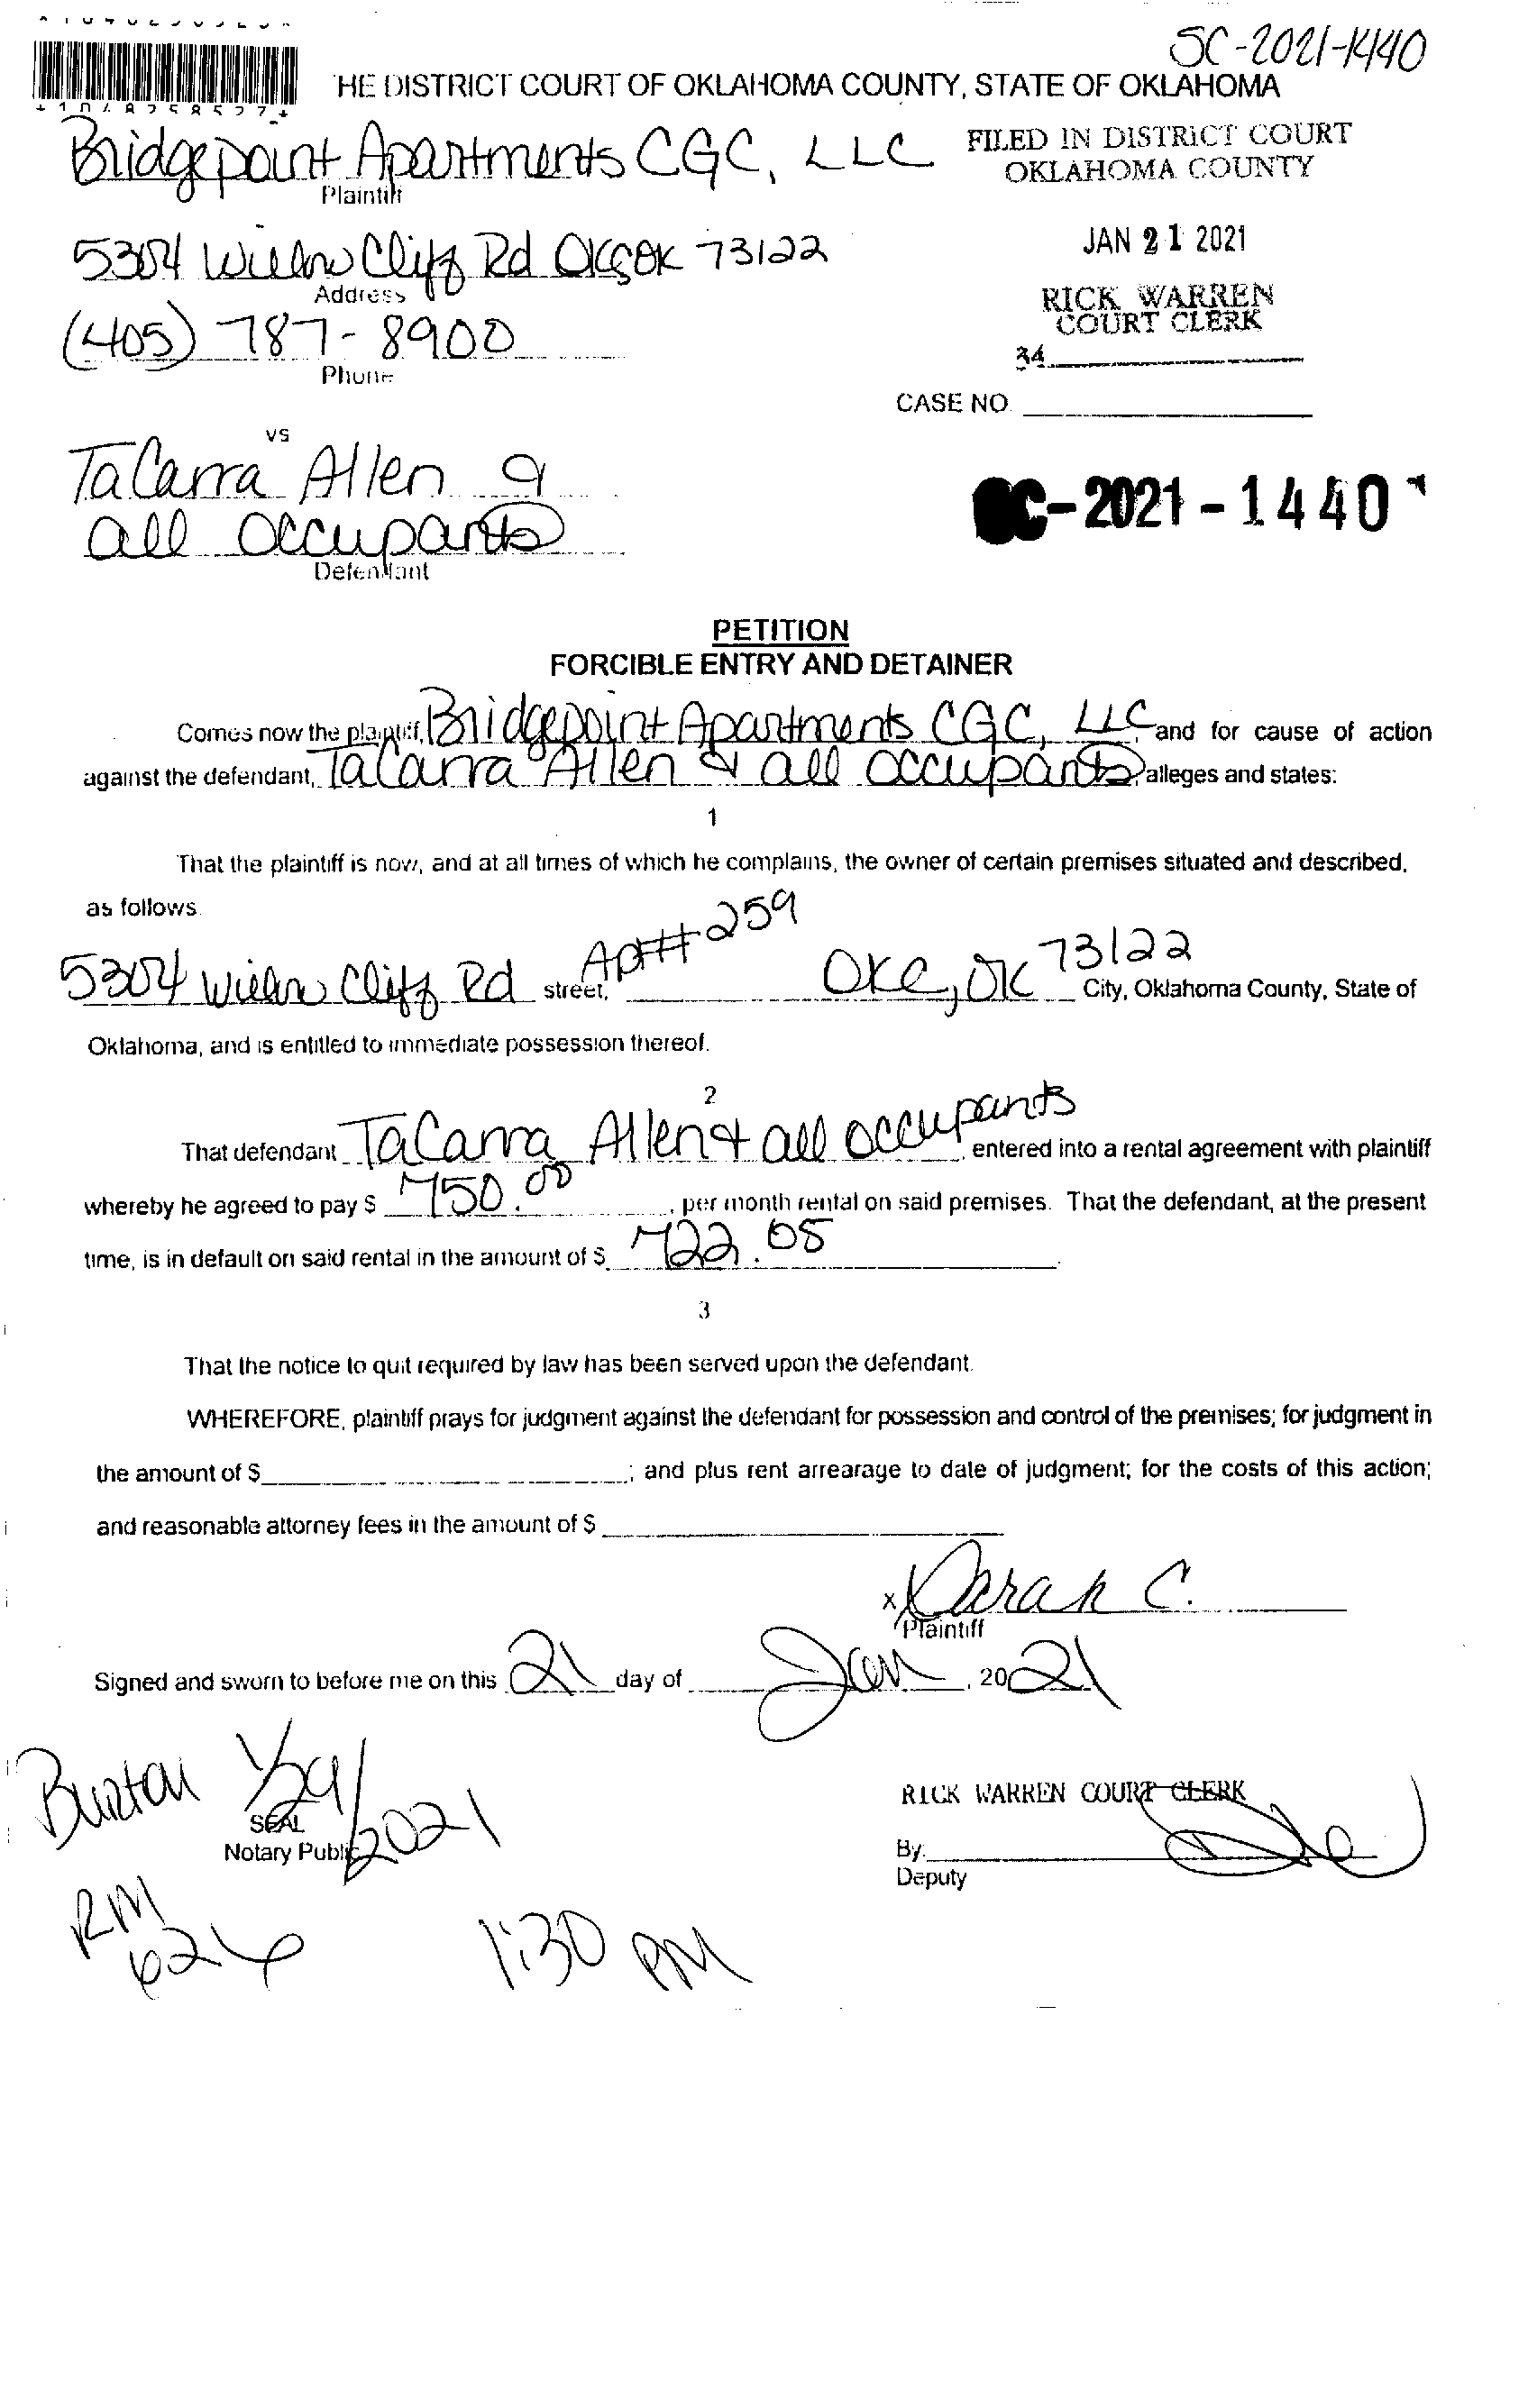 SC-2021-1440
HE DISTRICT COURT OF OKLAHOMA COUNTY, STATE OF OKLAHOMA
Bridgepoint Apartments CGC, LLC
Plaintiff
FILED IN DISTRICT COURT
OKLAHOMA COUNTY
5304 Willow Cliff Rd OKC OK 73122
Address
JAN 21 2021
(405) 787-8900
Phone
RICK WARREN
COURT CLERK
34
CASE NO.
vs
TaCarra Allen &
all occupants
Defendant
SC-2021-1440
PETITION
FORCIBLE ENTRY AND DETAINER
Comes now the plaintiff, Bridgepoint Apartments CGC, LLC, and for cause of action
against the defendant, TaCarra Allen & all occupants, alleges and states:
1
That the plaintiff is now, and at all times of which he complains, the owner of certain premises situated and described,
as follows.
5304 Willow Cliff Rd street, Apt# 259 OKC, OK 73122 City, Oklahoma County, State of
Oklahoma, and is entitled to immediate possession thereof.
2
That defendant TaCarra Allen & all occupants, entered into a rental agreement with plaintiff
whereby he agreed to pay $ 750.00, per month rental on said premises. That the defendant, at the present
time, is in default on said rental in the amount of $ 722.05.
3
That the notice to quit required by law has been served upon the defendant.
WHEREFORE, plaintiff prays for judgment against the defendant for possession and control of the premises; for judgment in
the amount of $ ; and plus rent arrearage to date of judgment; for the costs of this action;
and reasonable attorney fees in the amount of $
x Sarah C.
Plaintiff
Signed and sworn to before me on this 21 day of Jan, 2021
Burton 1/29/2021
SEAL
Notary Public
RICK WARREN COURT CLERK
By:
Deputy
RM
626
1:30 PM